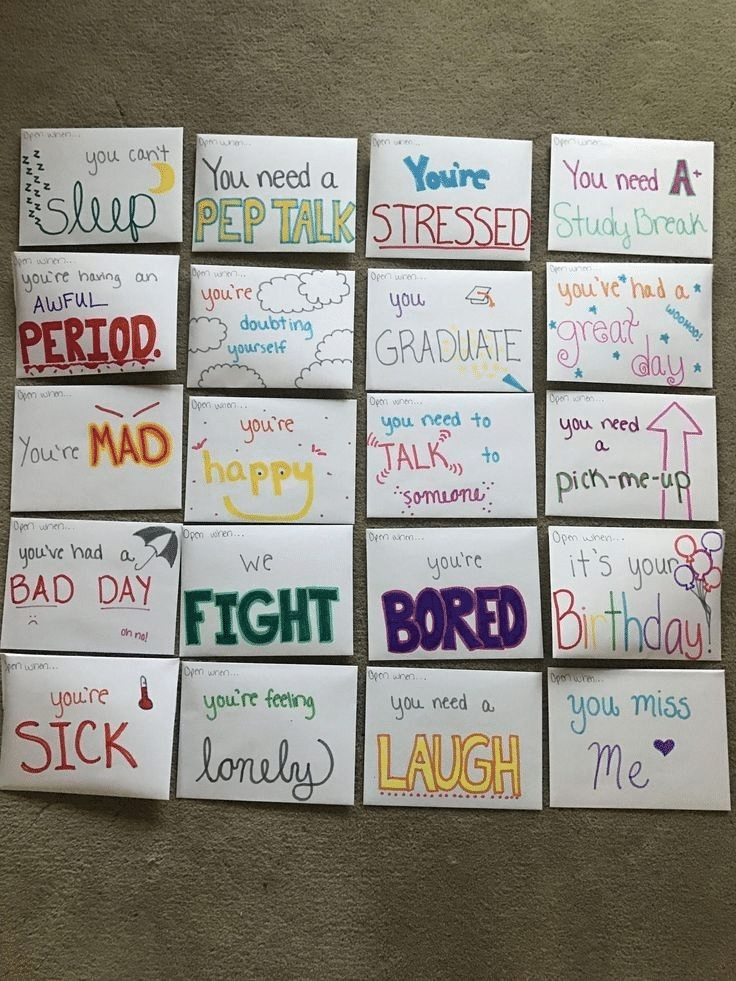 Open when...
you can't
z z z z z z z z z
sleep
Open when...
You need a
PEP TALK
Open when...
You're
STRESSED
Open when...
You need A+
Study Break
Open when...
you're having an
AWFUL
PERIOD.
Open when...
you're
doubting
yourself
Open when...
you
GRADUATE
Open when...
you've had a
WOOHOO!
great
day
Open when...
You're MAD
Open when...
you're
happy
Open when...
you need to
TALK to
someone
Open when...
you need
a
pick-me-up
Open when...
you've had a
BAD DAY
oh no!
Open when...
we
FIGHT
Open when...
you're
BORED
Open when...
it's your
Birthday!
Open when...
you're
SICK
Open when...
you're feeling
lonely
Open when...
you need a
LAUGH
Open when...
you miss
Me